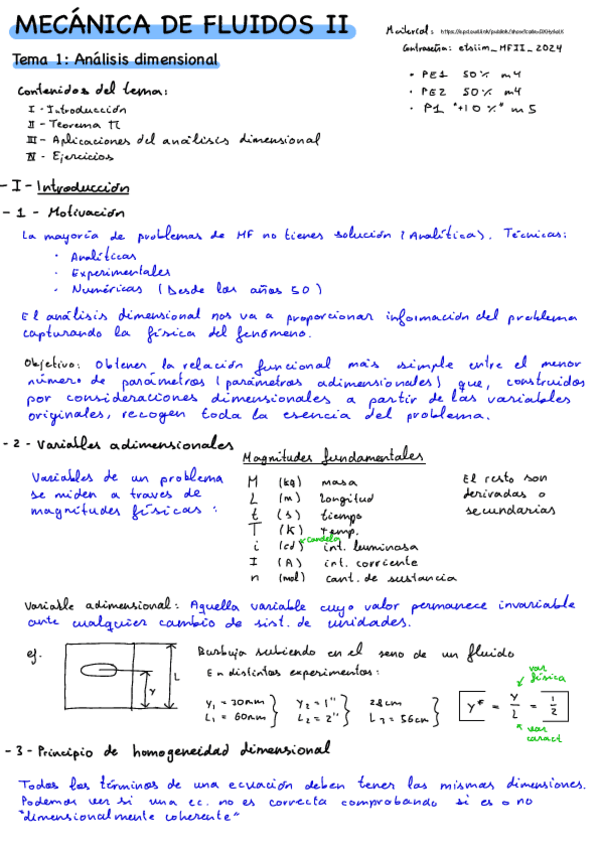 MECÁNICA DE FLUIDOS II
Material:
Contraseña: etsiim_MFII_2024
Tema 1: Análisis dimensional
· PE1 50% m4
· PE2 50% m4
· P1 "+10%" m5
Contenidos del tema:
I - Introducción
II - Teorema π
III - Aplicaciones del análisis dimensional
IV - Ejercicios
- I - Introducción
- 1 - Motivación
La mayoría de problemas de MF no tienes solución (Analítica). Técnicas:
· Analíticas
· Experimentales
· Numéricas (Desde los años 50)
El análisis dimensional nos va a proporcionar información del problema
capturando la física del fenómeno.
Objetivo: Obtener la relación funcional más simple entre el menor
número de parámetros (parámetros adimensionales) que, construidos
por consideraciones dimensionales a partir de las variables
originales, recogen toda la esencia del problema.
- 2 - Variables adimensionales
Magnitudes fundamentales
Variables de un problema
se miden a traves de
magnitudes físicas :
M (kg) masa
L (m) longitud
t (s) tiempo
T (K) temp.
candela
i (cd) int. luminosa
I (A) int. corriente
n (mol) cant. de sustancia
El resto son
derivadas o
secundarias
Variable adimensional: Aquella variable cuyo valor permanece invariable
ante cualquier cambio de sist. de unidades.
ej.
L
Y
Burbuja subiendo en el seno de un fluido
En distintos experimentos:
Y₁ = 30mm
L₁ = 60mm
Y₂ = 1"
L₂ = 2"
28cm
L₃ = 56cm
var
física
Y* = Y/L = 1/2
var
caract
- 3 - Principio de homogeneidad dimensional
Todos los términos de una ecuación deben tener las mismas dimensiones.
Podemos ver si una ec. no es correcta comprobando si es o no
"dimensionalmente coherente"